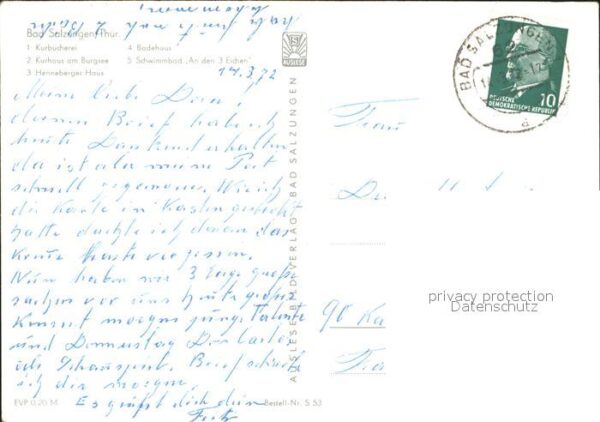 Bad Salzungen/Thür.
1 Kurbücherei
2 Kurhaus am Burgsee
3 Henneberger Haus
4 Badehaus
5 Schwimmbad "An den 3 Eichen"
AUSLESE
14.3.72
Meine liebe Dora!
deinen Brief habe ich
heute Dankend erhalten
da ist aber meine Post
schnell gegangen. Wie ich
die Karte in Kasten gesteckt
hatte dachte ich daran das
vergessen.
Nun haben wir 3 Tage große
Sachen vor uns heute großes
Konzert morgen junge Talente
und Donnerstag Don Carlos
als Schauspiel. Brief schreibe
ich dir morgen.
Es grüßt dich dein
Fritz
EVP 0,20 M
Bestell-Nr. S 53
AUSLESE-BILD-VERLAG · BAD SALZUNGEN
BAD SALZUNGEN
DEUTSCHE
DEMOKRATISCHE REPUBLIK
10
a
Frau
90 Ka
privacy protection
Datenschutz